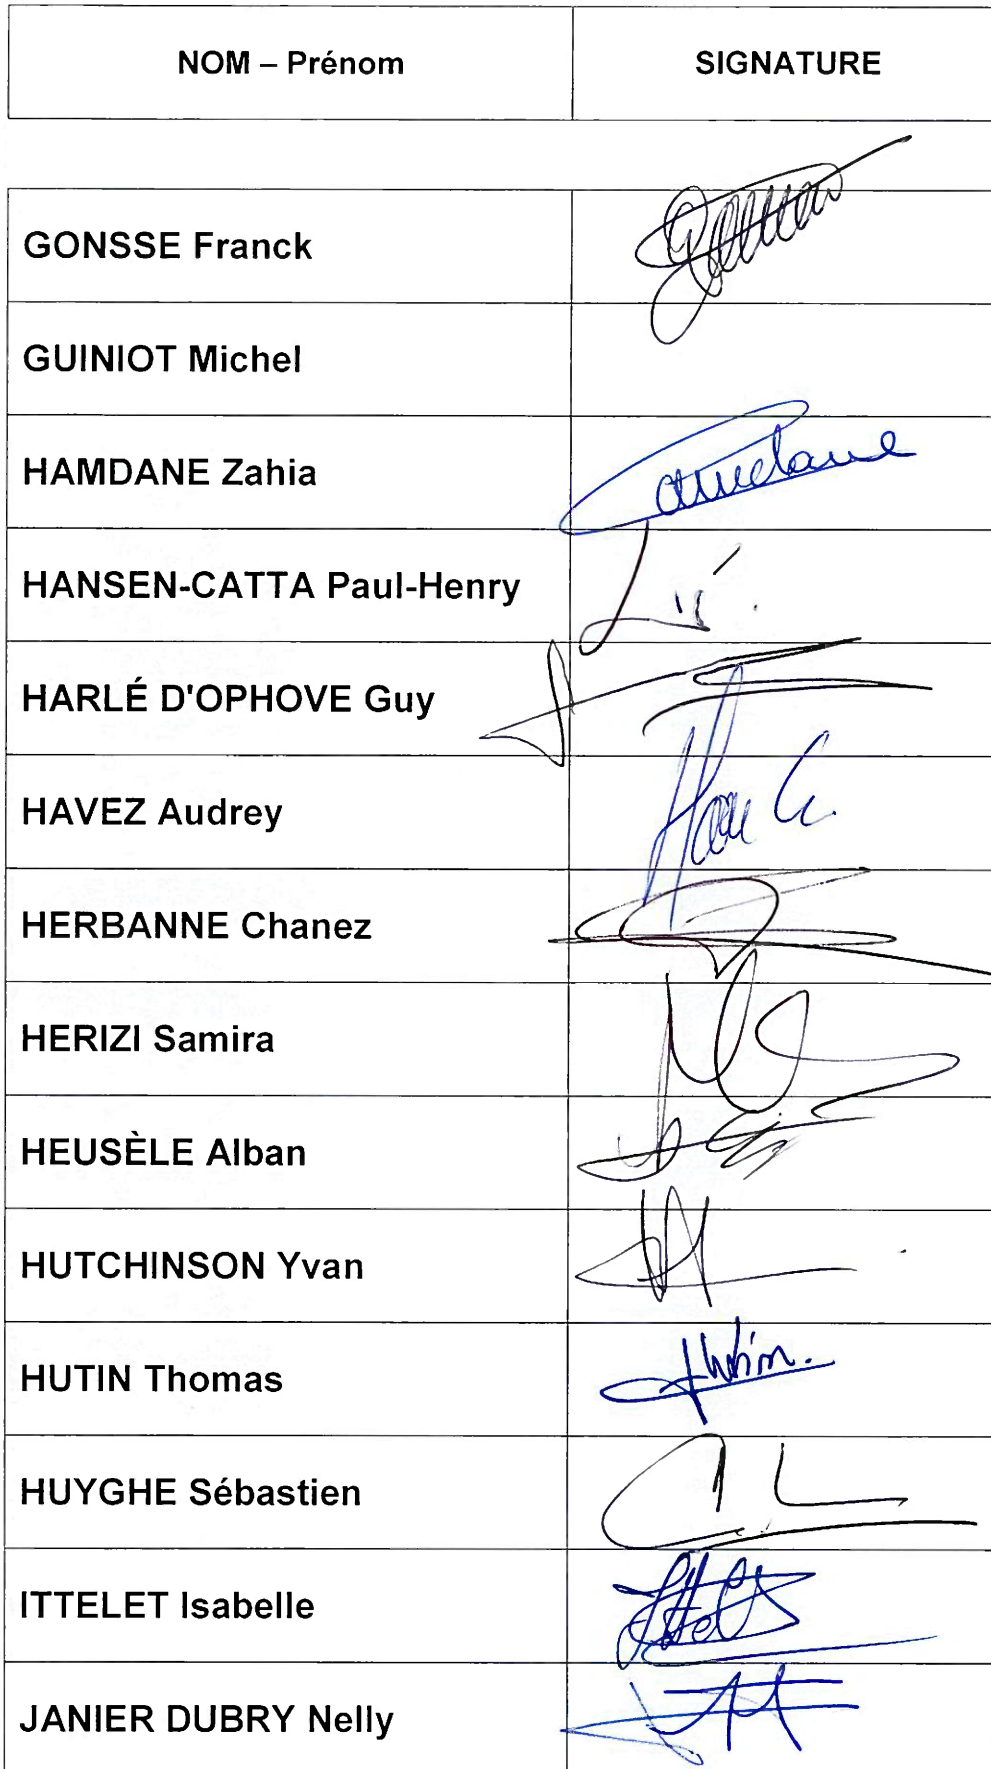 NOM – Prénom SIGNATURE
GONSSE Franck
GUINIOT Michel
HAMDANE Zahia
HANSEN-CATTA Paul-Henry
HARLÉ D'OPHOVE Guy
HAVEZ Audrey
HERBANNE Chanez
HERIZI Samira
HEUSÈLE Alban
HUTCHINSON Yvan
HUTIN Thomas Hutin.
HUYGHE Sébastien
ITTELET Isabelle
JANIER DUBRY Nelly